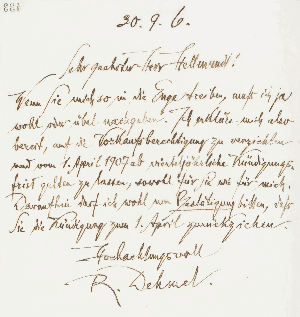 30. 9. 6.
Sehr geehrter Herr Hellmundt!
Wenn Sie mich so in die Enge treiben, muß ich ja
wohl oder übel nachgeben. Ich erkläre mich also
bereit, auf die Vorkaufsberechtigung zu verzichten
und vom 1. April 1907 ab vierteljährliche Kündigungs-
frist gelten zu lassen, sowohl für Sie wie für mich.
Daraufhin darf ich wohl um Bestätigung bitten, daß
Sie die Kündigung zum 1. April zurückziehen.
Hochachtungsvoll
R. Dehmel.